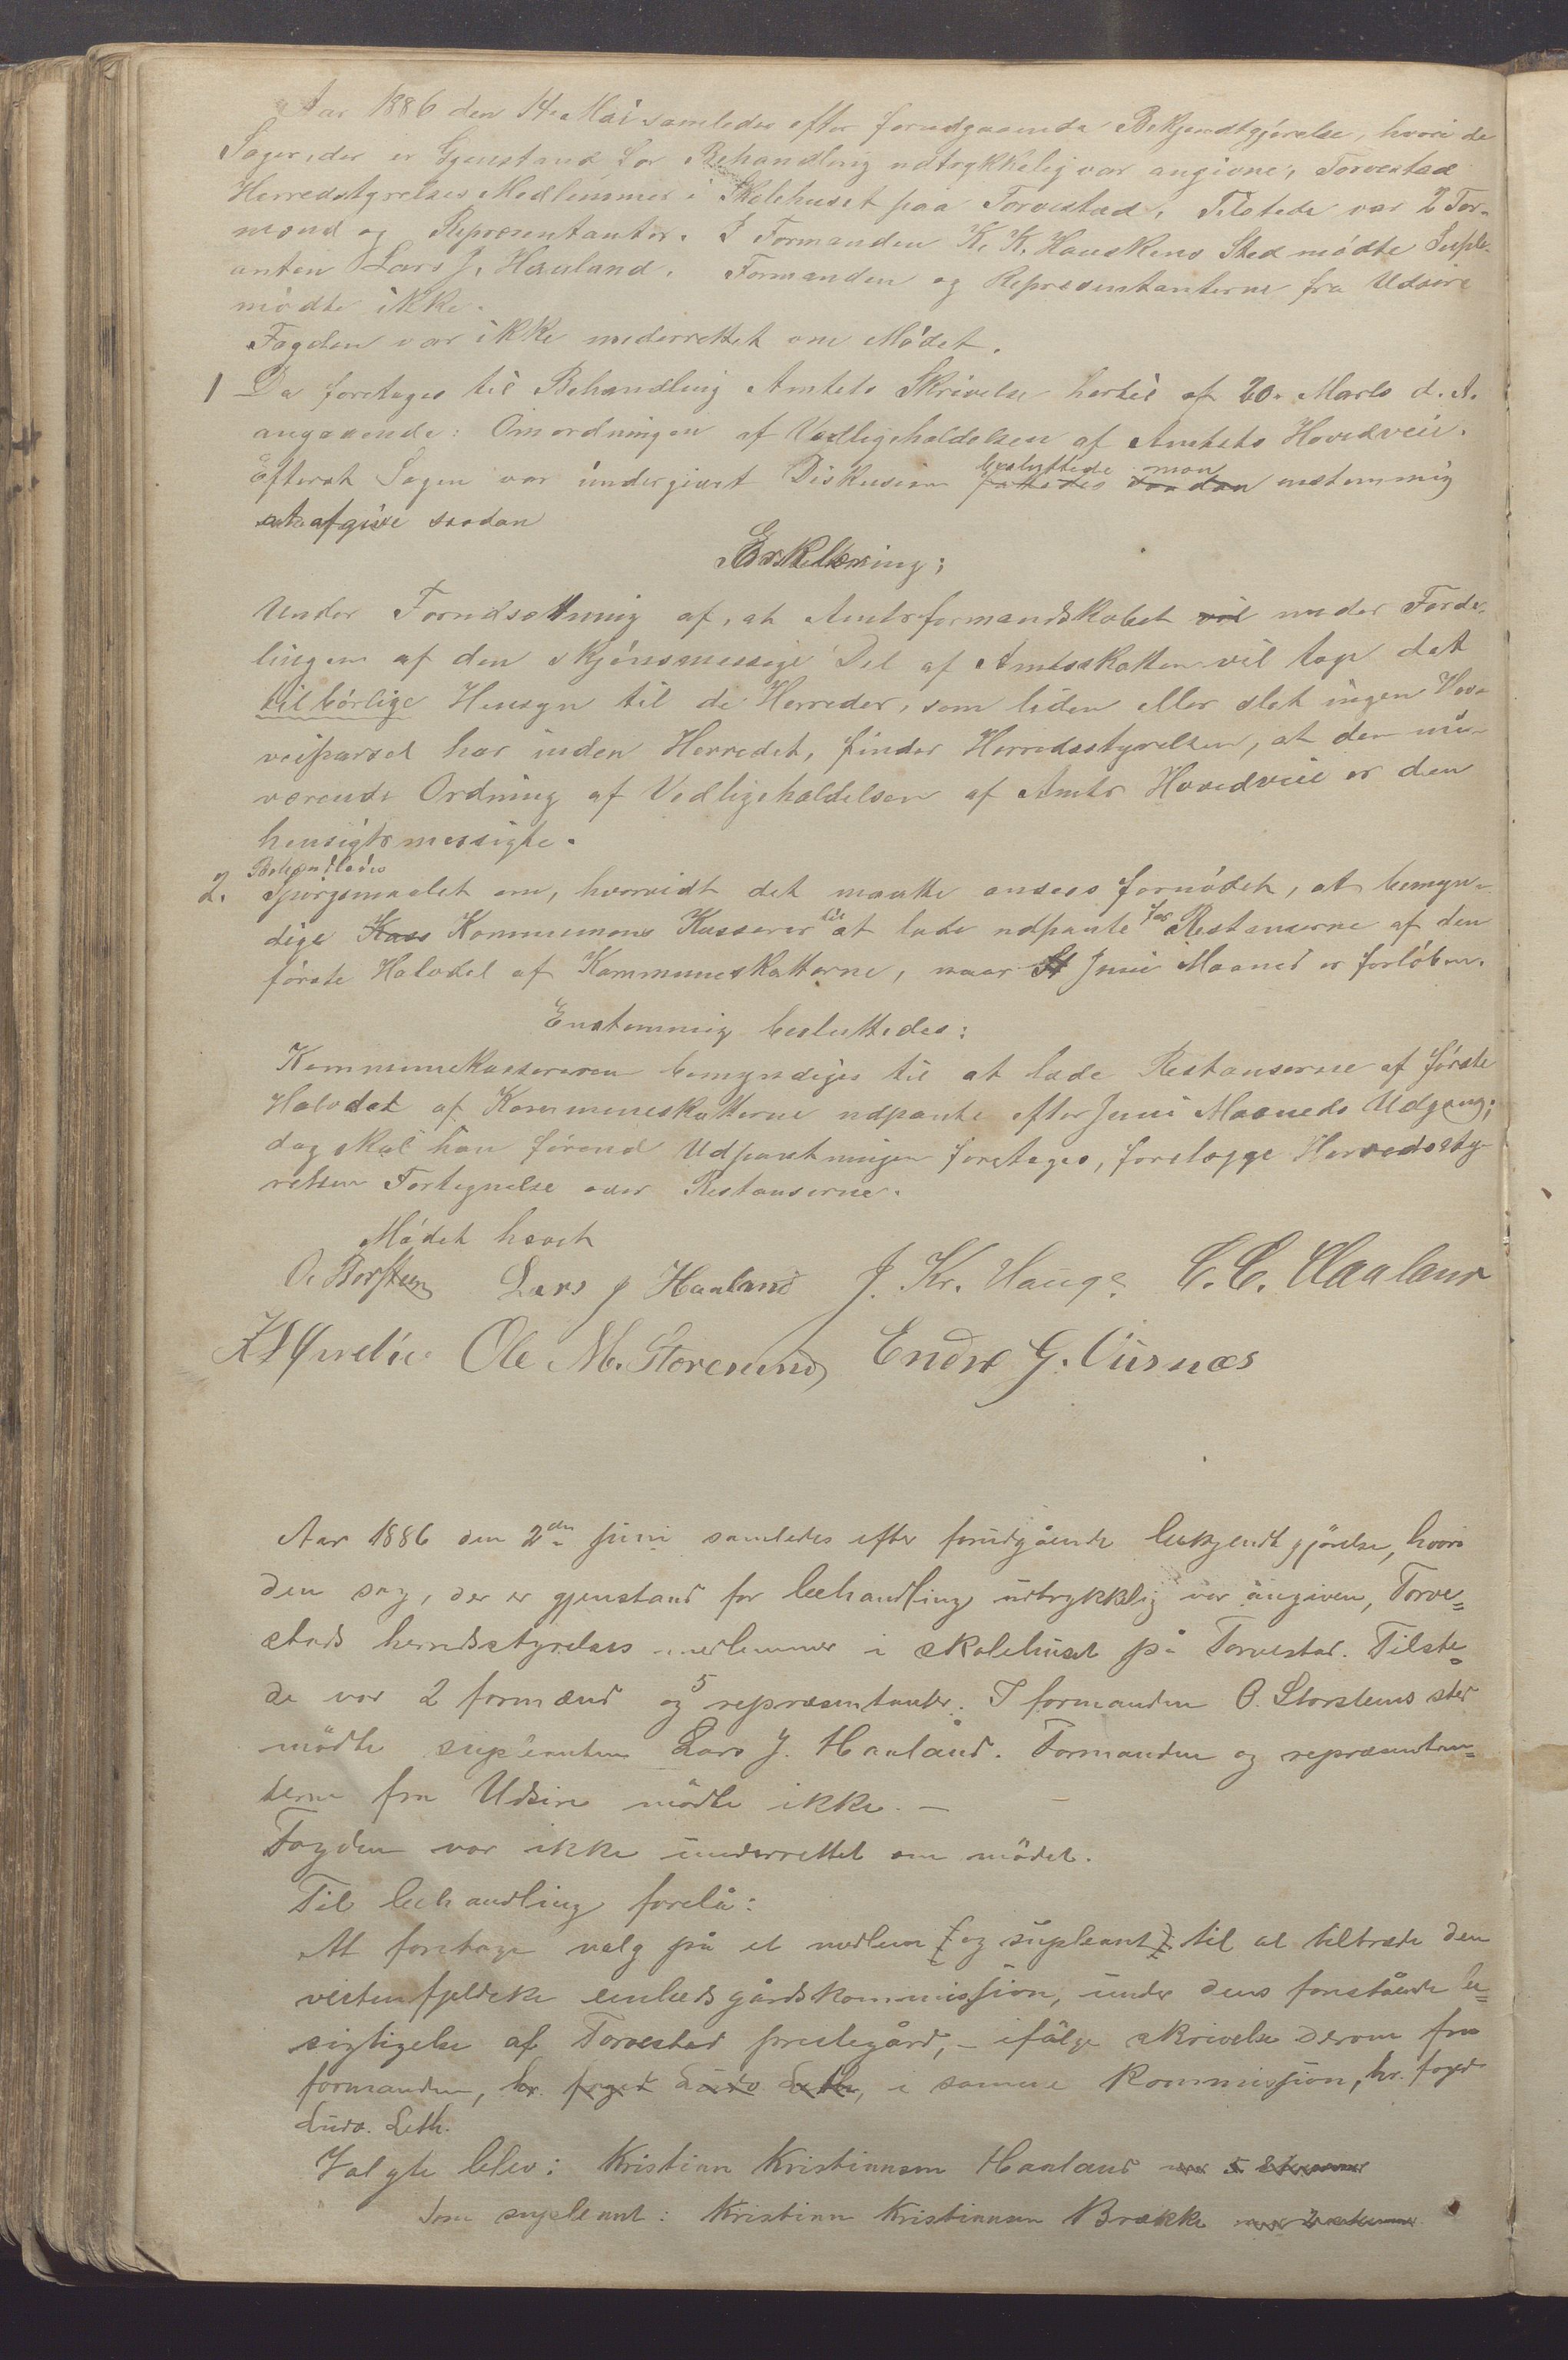 Aar 1886 den 14. Mai samledes efter forudgaaende Bekjendtgjørelse, hvori de
Sager, der er Gjenstand for Behandling udtrykkelig var angivne, Torvestad
Herredstyrelses Medlemmer i Skolehuset paa Torvestad. Tilstede var 2 For-
mænd og Repræsentanter. I Formanden K. K. Hauskens Sted mødte Suple-
anten Lars J. Haaland. Formanden og Repræsentanterne fra Udsire
mødte ikke.
Fogden var ikke underrettet om Mødet.
1 Da foretages til Behandling Amtets Skrivelse hertil af 20. Marts d. A.
angaaende: Omordningen af Vedligeholdelsen af Amtets Hovedveie.
Efterat Sagen var undergivet Diskusion besluttede man enstemmig
at afgive saadan
Erklæring;
Under Forudsætning af, at Amtsformandskabet under Forde-
lingen af den skjønsmessige Del af Amtsskatten vil tage det
tilbørlige Hensyn til de Herreder, som liden eller slet ingen Hov-
veiparsel har inden Herredet, finder Herredsstyrelsen, at den nu-
værende Ordning af Vedligeholdelsen af Amts Hovedveie er den
hensigtsmessigte.
Behandledes
2. Spørgsmaalet om, hvorvidt det maatte ansees fornødet, at bemyn-
dige Kommunens Kasserer til at lade udpante for Restanserne af den
første Halvdel af Kommuneskatterne, naar Juni Maaned er forløben.
Enstemmig besluttedes:
Kommunekassereren bemyndiges til at lade Restanserne af første
Halvdel af Kommuneskatterne udpante efter Juni Maaneds Udgang;
dog skal han førend Udpantningen foretages, forelægge Herredssty-
relsen Fortegnelse over Restanserne.
Mødet hævet
O. Storsteen Lars J Haaland J. Kr. Hauge. C. C. Haaland
Ole M. Storesund Endre G. Visnæs
Aar 1886 den 2den juni samledes efter forudgående bekjendtgjörelse, hvori
den sag, der er gjenstand for behandling udtrykklig var angiven, Torve=
stads herredsstyrelses medlemmer i skolehuset på Torvestad. Tilste=
de var 2 formænd og 5 repræsentanter. I formanden O. Storsteens sted
mödte supleanten Lars J. Haaland. Formanden og repræsentan=
terne fra Udsire mödte ikke. —
Fogden var ikke underrettet om mödet.
Til behandling forelå:
At foretage valg på et medlem (og supleant) til at tiltræde den
vestenfjeldske embedsgårdskommission, under dens forestående be=
sigtigelse af Torvestad prestegård, – ifölge skrivelse derom fra
formanden, i samme kommission, hr. fogd
Ludv. Leth.
Valgte blev: Kristian Kristiansen Haaland
Som supleant: Kristian Kristiansen Brække